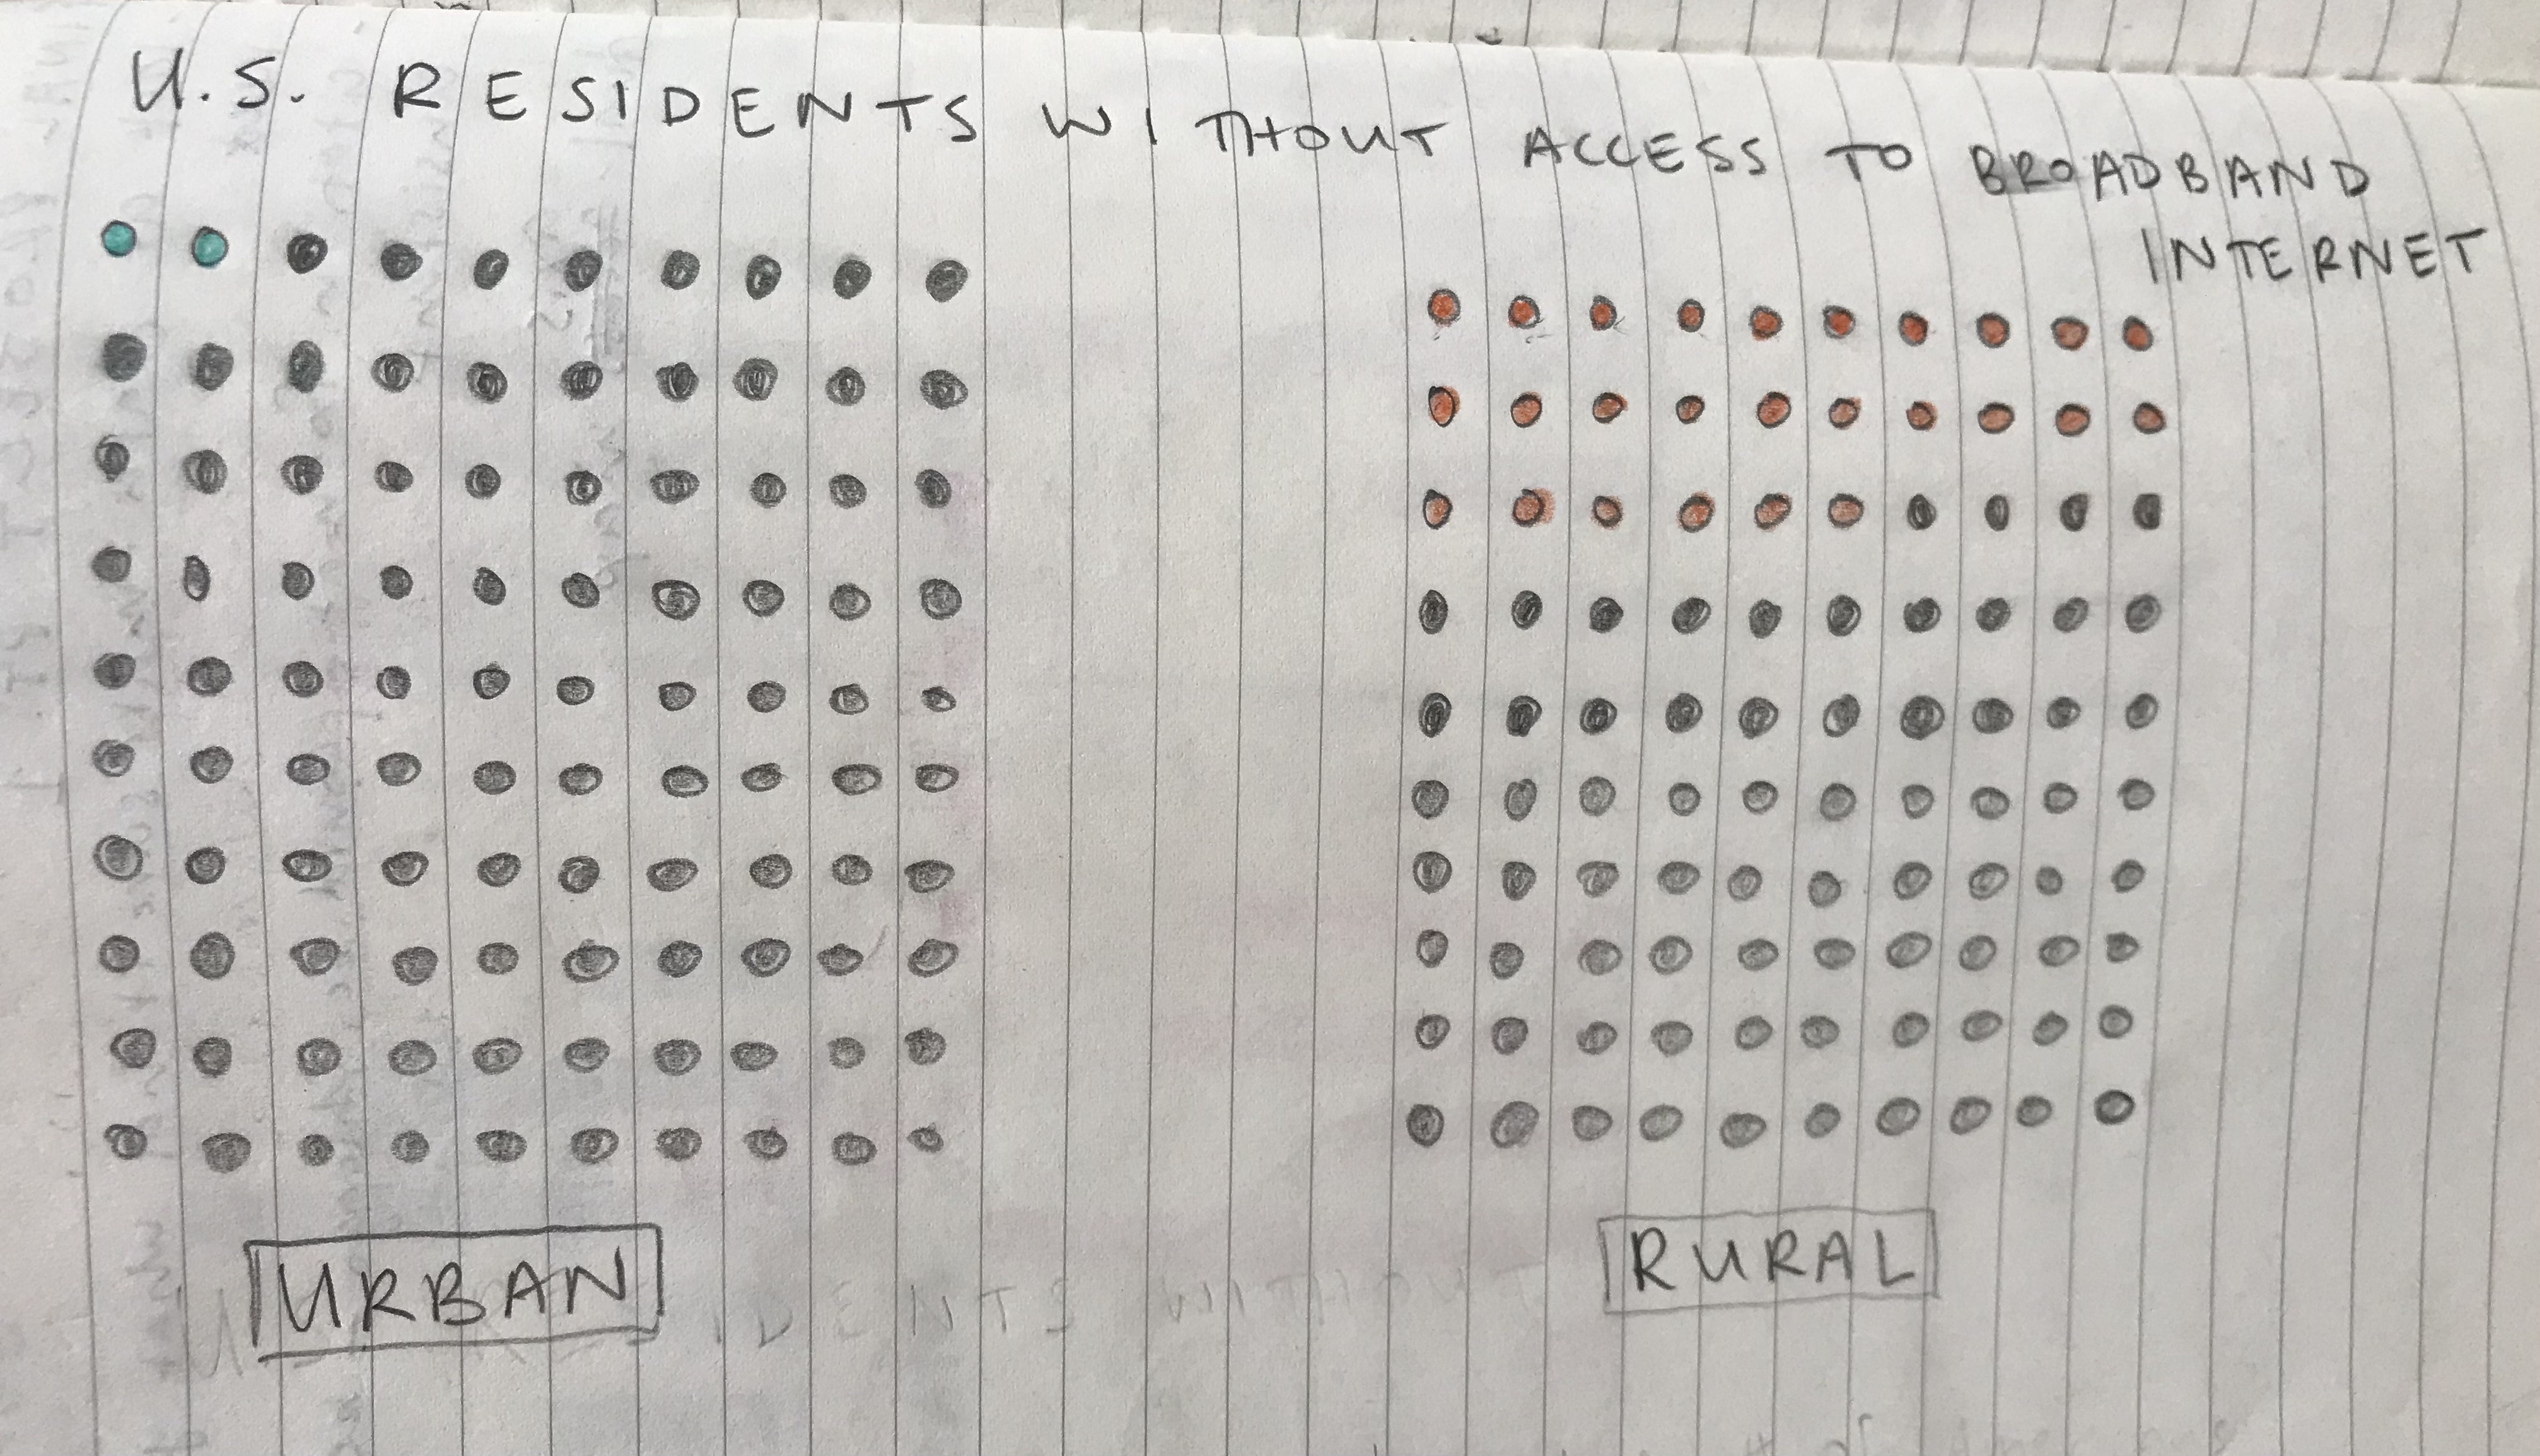 U.S. RESIDENTS WITHOUT ACCESS TO BROADBAND
INTERNET
URBAN
RURAL